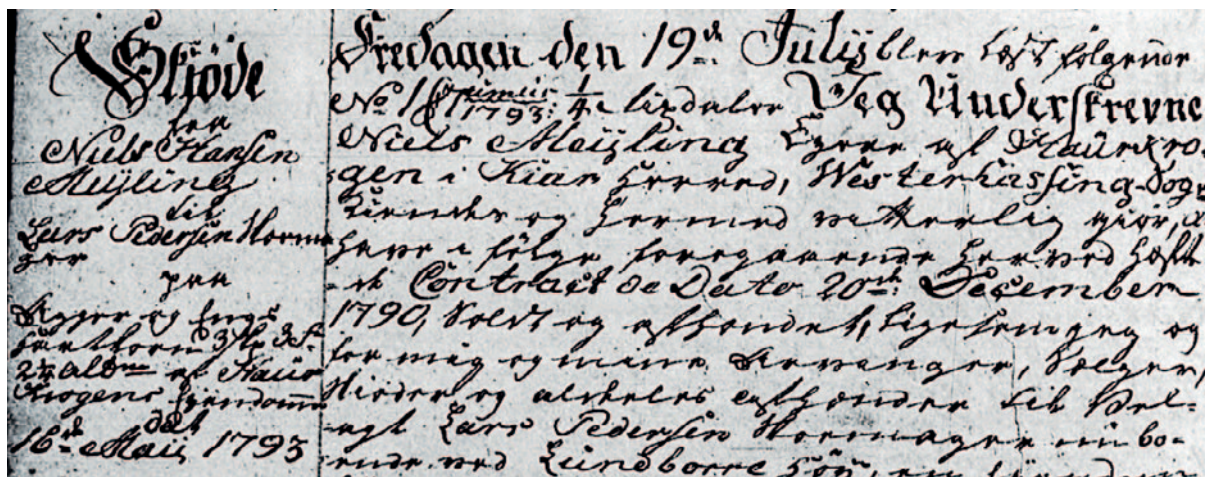 Skjöde
fra
Niels Hansen
Meyling
til
Lars Pedersen Horma
ger
paa
Ager og Engs
Hartkorn 3 skp 3 f.
2¼ alb af Haur
Krogens Ejendomme
dat
16de Maij 1793
Fredagen den 19de Julij blev læst følgende
No 1 1793: ¼ Rigsdaler Jeg Underskrevne
Niels Meyling Eyere af Haurkro-
gen i Kiær Herred, Westerhassing Sogn
Kiender og hermed vitterlig giør, at
have i følge foregaaende herved hæft
-et Contract de Dato 20de December
1790, Solgt og afhændet, ligesom jeg og
for mig og mine Arvinger, Sælger,
Skiøder og aldeles afhænder til Vel-
agt Lars Pedersen Hormager nu bo-
ende ved Lundborre Höy, en